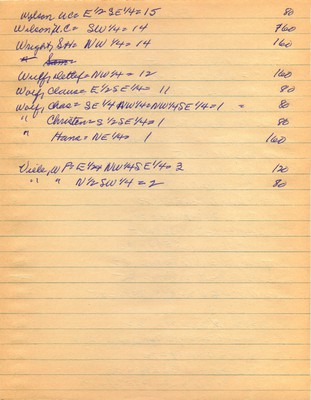 Wylson WC= E½SE¼=15 80
Wilson, W.C.= SW¼=14 160
Wright, S.H= NW¼=14 160
Wulff, Detlef=NW¼= 12 160
Wolf, Clause= E½SE¼= 11 80
Wolf, Chas= SE¼NW¼=NW¼SE¼=1 = 80
" Christen=S½SE¼=1 80
" Hans= NE¼= 1 160
Viele, W P=E½ NW¼SE¼=3 120
" " N½SW¼=2 80